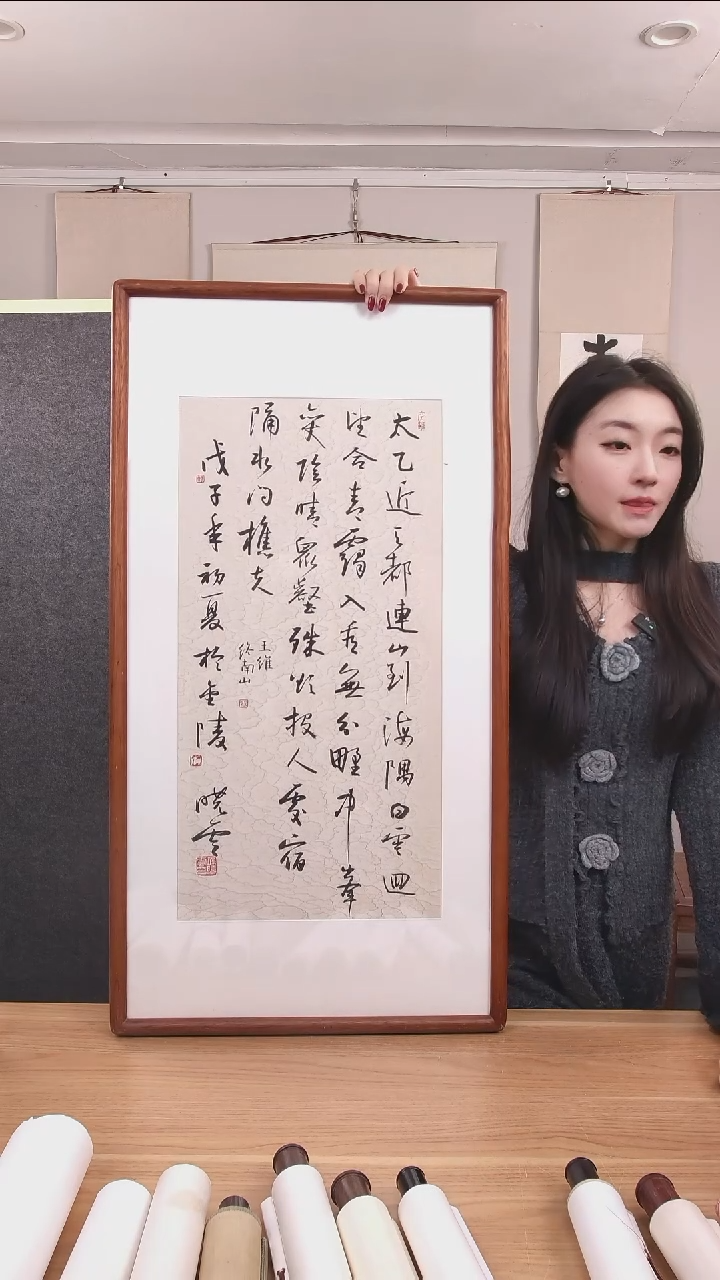 太乙近天都連山到海隅白雲迴
望合青靄入看無分野中峯
變陰晴衆壑殊欲投人處宿
隔水问樵夫
王維
终南山
戊子年初夏於金陵 晓雲